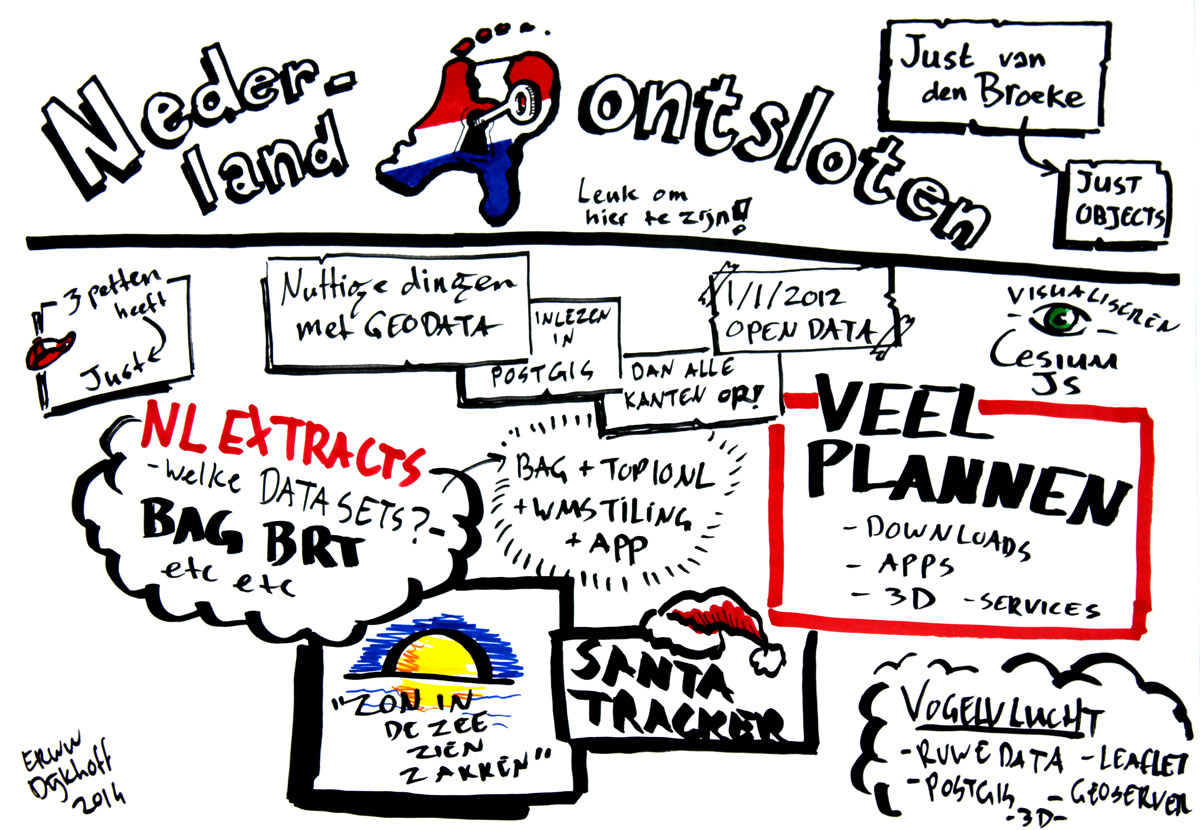 Neder-
land
ontsloten
Leuk om
hier te zijn!
Just van
den Broeke
JUST
OBJECTS
3 petten
heeft
Just
Nuttige dingen
met GEODATA
INLEZEN
IN
POSTGIS
DAN ALLE
KANTEN OP!
1/1/2012
OPEN DATA
VISUALISEREN
CESIUM
JS
NL EXTRACTS
-welke DATASETS?-
BAG BRT
etc etc
BAG + TOP10NL
+ WMS TILING
+ APP
VEEL
PLANNEN
- DOWNLOADS
- APPS
- 3D - SERVICES
"ZON IN
DE ZEE
ZIEN
ZAKKEN"
SANTA
TRACKER
VOGELVLUCHT
- RUWE DATA - LEAFLET
- POSTGIS - GEOSERVER
- 3D -
ERWIN
Dijkhoff
2014